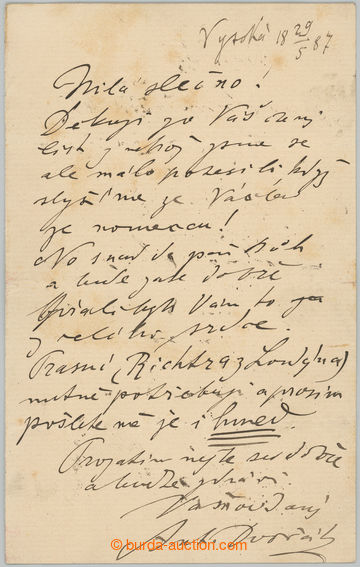 Vysoká 18 29/5 87
Milá slečno!
Děkuji za Váš ctěný
list z něhož jsme se
ale málo potěšili když
slyšíme že Václav
je nemocen!
No snad dá pán Bůh
a bude zase dobře
přál bych Vám to
z celého srdce.
Psaní (Richtra z Londýna)
nutně potřebuji a prosím
pošlete mě je i hned.
Prozatím mějte se dobře
a buďte zdrávi
Váš oddaný
Ant. Dvořák
© burda-auction.com